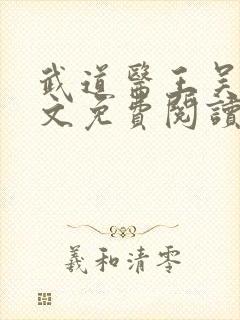 武道醫王吴
文免費閱讀
羲和清零